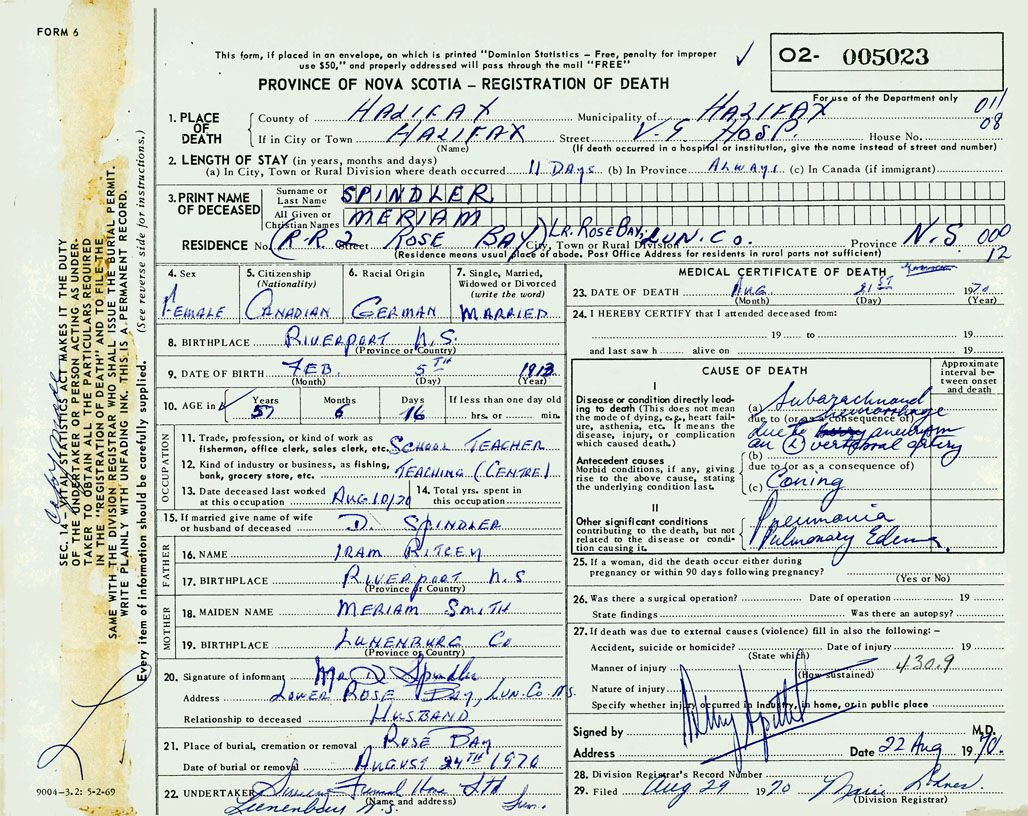 FORM 6
This form, if placed in an envelope, on which is printed "Dominion Statistics – Free, penalty for improper
use $50," and properly addressed will pass through the mail "FREE"
PROVINCE OF NOVA SCOTIA – REGISTRATION OF DEATH
O2- 005023
For use of the Department only
011
08
1. PLACE OF DEATH
County of HALIFAX Municipality of HALIFAX
If in City or Town HALIFAX Street V.G HOSP. House No.
(Name) (If death occurred in a hospital or institution, give the name instead of street and number)
2. LENGTH OF STAY (in years, months and days)
(a) In City, Town or Rural Division where death occurred 11 DAYS (b) In Province ALWAYS (c) In Canada (if immigrant)
3. PRINT NAME OF DECEASED
Surname or Last Name SPINDLER
All Given or Christian Names MERIAM
RESIDENCE No. (R.R.2 Street ROSE BAY) LR. ROSE BAY, City, Town or Rural Division LUN. CO. Province N.S 000
(Residence means usual place of abode. Post Office Address for residents in rural parts not sufficient) 12
4. Sex
FEMALE
5. Citizenship
(Nationality)
CANADIAN
6. Racial Origin
GERMAN
7. Single, Married, Widowed or Divorced
(write the word)
MARRIED
8. BIRTHPLACE RIVERPORT N.S.
(Province or Country)
9. DATE OF BIRTH FEB 5TH 1913
(Month) (Day) (Year)
10. AGE in
Years Months Days If less than one day old
57 6 16 hrs. or min.
OCCUPATION
11. Trade, profession, or kind of work as
fisherman, office clerk, sales clerk, etc. SCHOOL TEACHER
12. Kind of industry or business, as fishing,
bank, grocery store, etc. TEACHING (CENTRE)
13. Date deceased last worked
at this occupation AUG 10/70
14. Total yrs. spent in
this occupation
15. If married give name of wife
or husband of deceased D. SPINDLER
FATHER
16. NAME IRAM RITCEY
17. BIRTHPLACE RIVERPORT N.S
(Province or Country)
MOTHER
18. MAIDEN NAME MERIAM SMITH
19. BIRTHPLACE LUNENBURG CO
(Province or Country)
20. Signature of informant Mr D. Spindler
Address LOWER ROSE BAY, LUN. CO. N.S.
Relationship to deceased HUSBAND
21. Place of burial, cremation or removal ROSE BAY
Date of burial or removal AUGUST 24TH 1970
22. UNDERTAKER Funeral Home Ltd
(Name and address)
Lunenburg N.S.
MEDICAL CERTIFICATE OF DEATH
23. DATE OF DEATH AUG. 21ST 1970
(Month) (Day) (Year)
24. I HEREBY CERTIFY that I attended deceased from:
19 to 19
and last saw h alive on 19
CAUSE OF DEATH
Approximate interval between onset and death
I
Disease or condition directly leading
to death (This does not
mean the mode of dying, e.g., heart failure,
asthenia, etc. It means the
disease, injury, or complication
which caused death.)
(a) Subarachnoid hemorrhage
due to (or as a consequence of)
due to aneurysm
an (L) vertebral artery
Antecedent causes
Morbid conditions, if any, giving
rise to the above cause, stating
the underlying condition last.
(b)
due to (or as a consequence of)
(c) Coning
II
Other significant conditions
contributing to the death, but not
related to the disease or condition
causing it.
Pneumonia
Pulmonary Edema.
25. If a woman, did the death occur either during
pregnancy or within 90 days following pregnancy?
(Yes or No)
26. Was there a surgical operation? Date of operation 19
State findings Was there an autopsy?
27. If death was due to external causes (violence) fill in also the following: –
Accident, suicide or homicide? Date of injury 19
(State which)
Manner of injury 430.9
(How sustained)
Nature of injury
Specify whether injury occurred in industry, in home, or in public place
Signed by M.D.
Address Date 22 Aug 1970.
28. Division Registrar's Record Number
29. Filed Aug 29 1970 Marie Lohnes
(Division Registrar)
SEC. 14 – VITAL STATISTICS ACT MAKES IT THE DUTY
OF THE UNDERTAKER OR PERSON ACTING AS UNDERTAKER
TO OBTAIN ALL THE PARTICULARS REQUIRED
IN THE "REGISTRATION OF DEATH" AND TO FILE THE
SAME WITH THE DIVISION REGISTRAR WHO SHALL ISSUE THE BURIAL PERMIT.
WRITE PLAINLY WITH UNFADING INK. THIS IS A PERMANENT RECORD.
Every item of information should be carefully supplied. (See reverse side for instructions.)
9004–3.2: 5-2-69